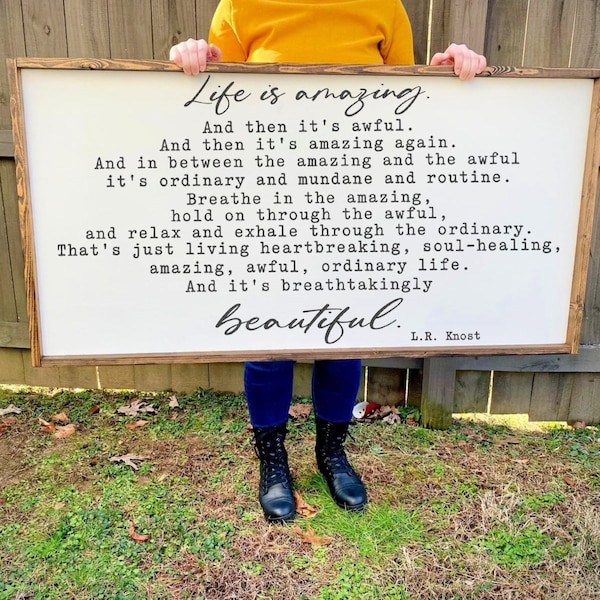 Life is amazing.
And then it's awful.
And then it's amazing again.
And in between the amazing and the awful
it's ordinary and mundane and routine.
Breathe in the amazing,
hold on through the awful,
and relax and exhale through the ordinary.
That's just living heartbreaking, soul-healing,
amazing, awful, ordinary life.
And it's breathtakingly
beautiful.
L.R. Knost